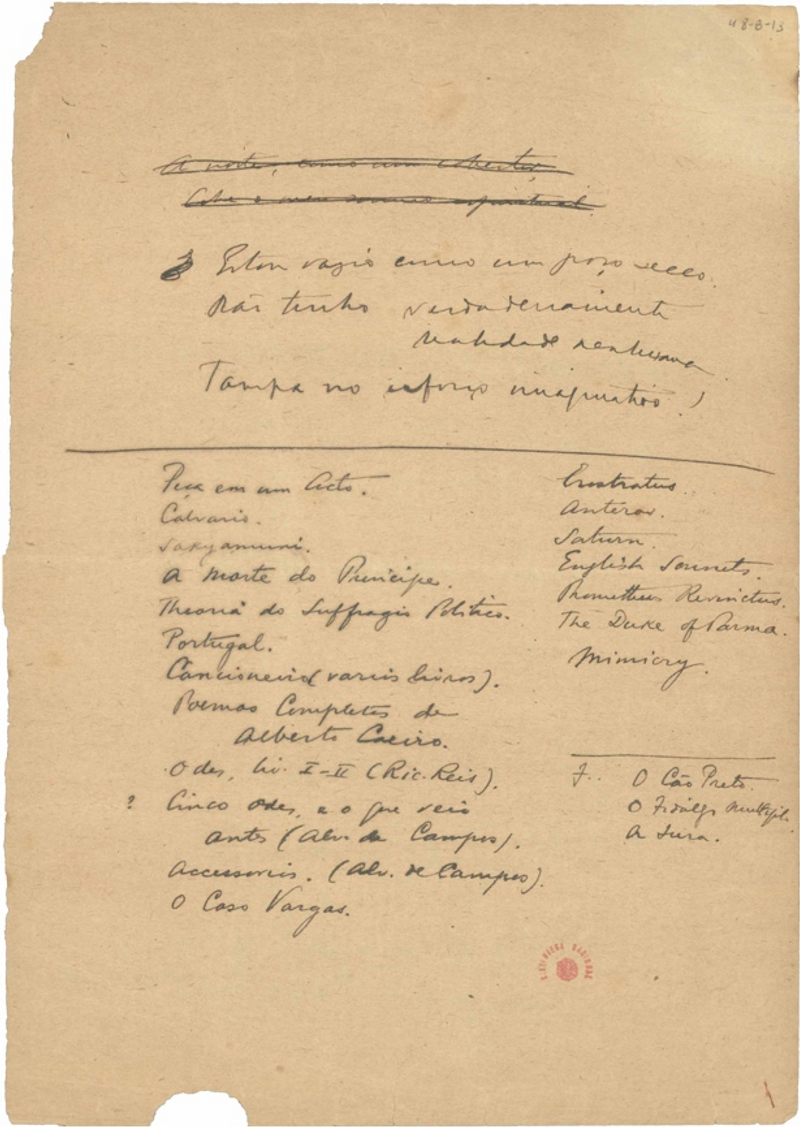 48-B-13
A noite, como um cobertor,
Cobre o meu somno espiritual.
Estou vazio como um poço secco.
Não tenho verdadeiramente
realidade nenhuma
Tampa no esforço imaginativo!
Peça em um Acto.
Calvario.
Sakyamuni.
A Morte do Principe.
Theoria do Suffragio Politico.
Portugal.
Cancioneiro (varios livros).
Poemas Completos de
Alberto Caeiro.
Odes, liv. I-II (Ric. Reis).
? Cinco odes, e o que veio
antes (Alv. de Campos).
Accessorios. (Alv. de Campos).
O Caso Vargas.
Erostratus.
Anteros.
Saturn.
English Sonnets.
Prometheus Revinctus.
The Duke of Parma.
Mimicry.
F.. O Cão Preto.
O Fidalgo
A
BIBLIOTECA NACIONAL